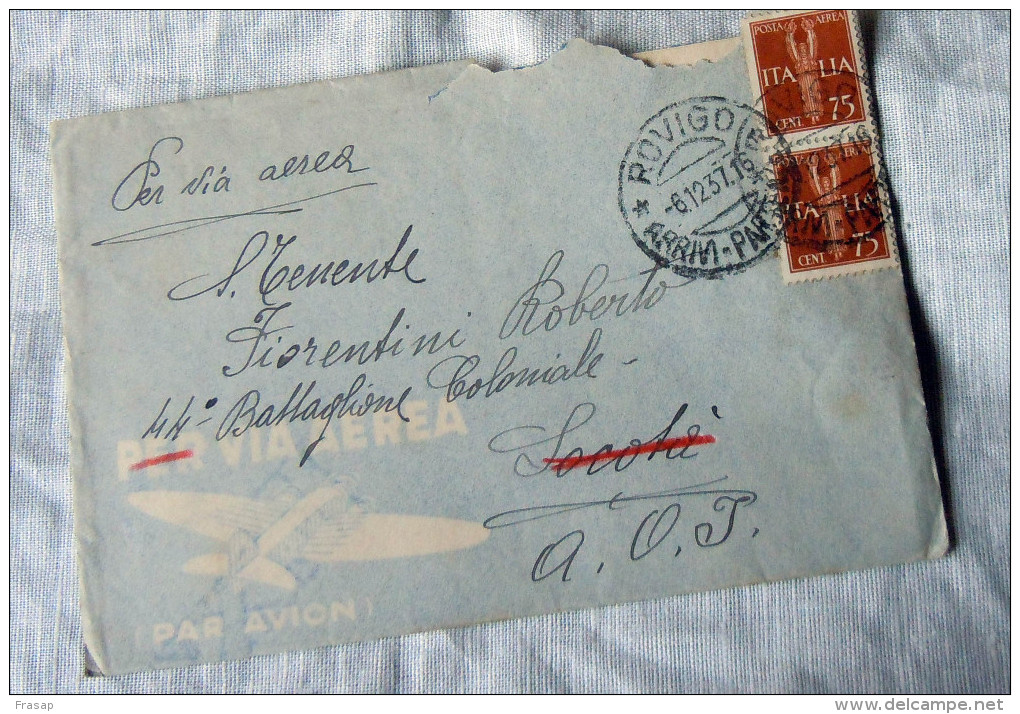 POSTA AEREA
ITALIA
CENT. 75
ITALIA
CENT. 75
ROVIGO
-6.12.37.16
ARRIVI-PAR
Per via aerea
S. Tenente
Fiorentini Roberto
44° Battaglione Coloniale -
Socotà
A. O. I.
PER VIA AEREA
(PAR AVION)
Frasap
delcampe.net